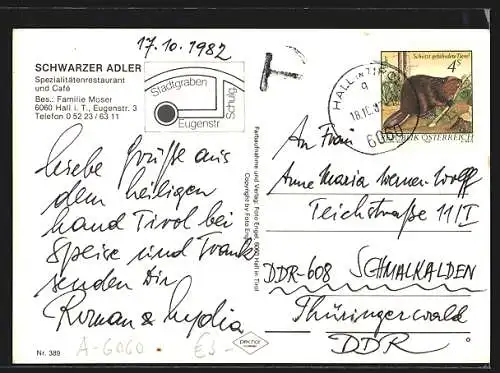 17.10.1982
SCHWARZER ADLER
Spezialitätenrestaurant
und Café
Bes.: Familie Moser
6060 Hall i. T., Eugenstr. 3
Telefon 0 52 23/63 11
Stadtgraben
Eugenstr
Schulg.
T
HALL IN TIROL
18.10.8
6060
Schützt gefährdete Tiere!
4 S
REPUBLIK ÖSTERREICH
Liebe Grüße aus
dem heiligen
Land Tirol bei
Speise und Trank
senden Dir
Roman & Lydia
Farbaufnahme und Verlag: Foto Engel, 6060 Hall in Tirol
Copyright by Foto Engel
An Frau
Anne Maria Werner-Wolff
Teichstraße 11/I
DDR-608 SCHMALKALDEN
Thüringerwald
DDR
Nr. 389
A-6060